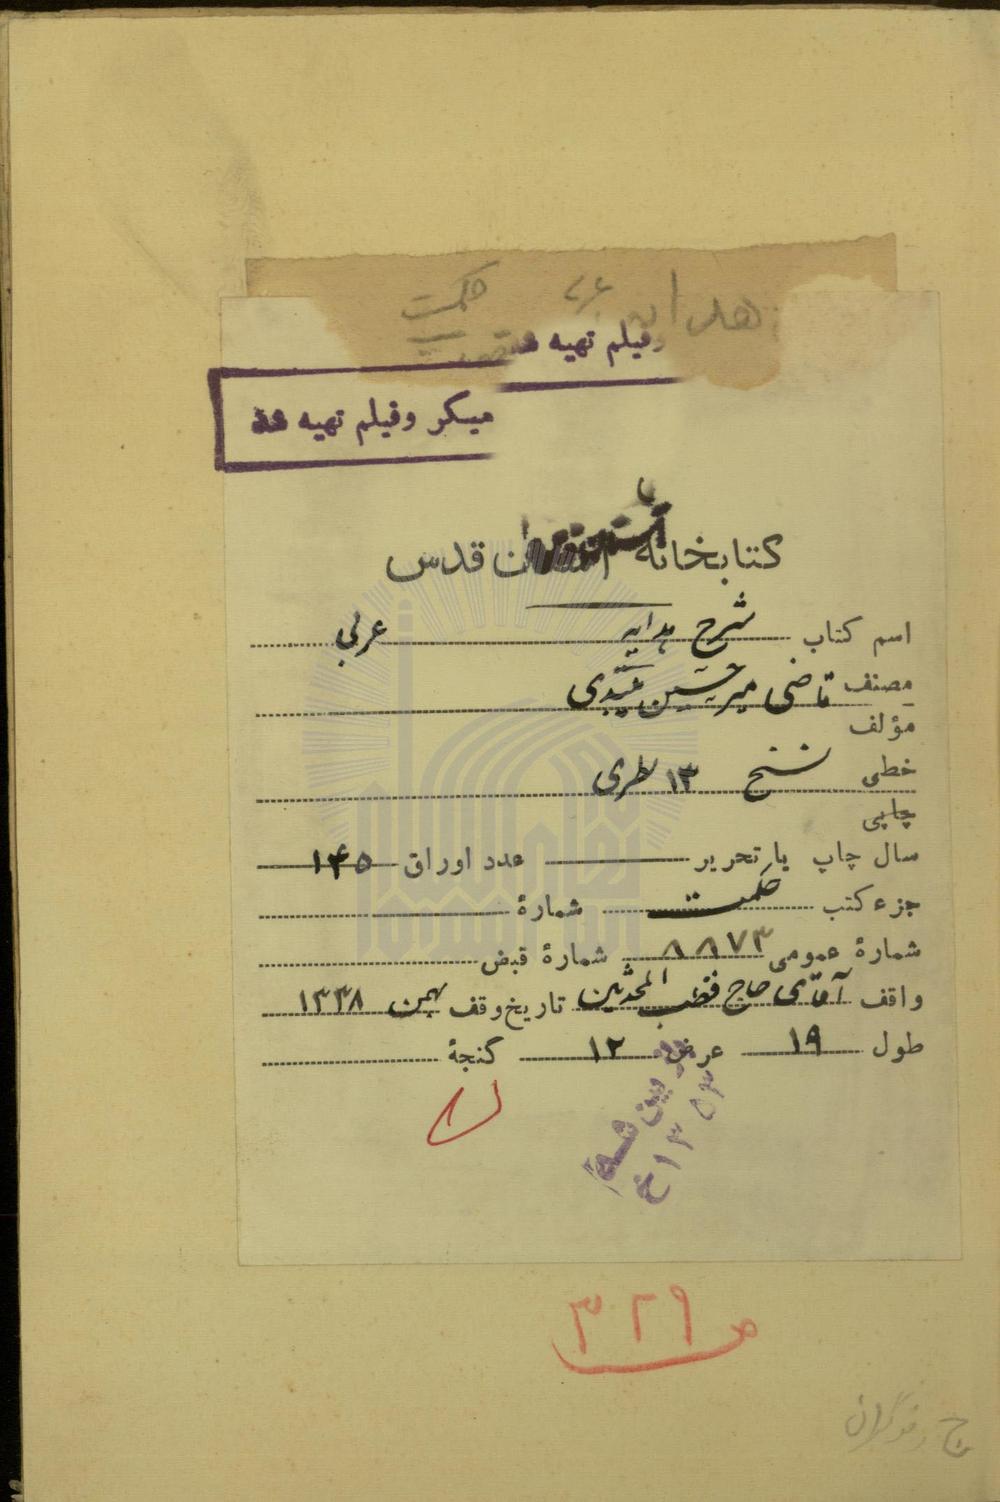 هدایه حکمت
وفیلم تهیه شد
میکر وفیلم تهیه شد
کتابخانه آستان قدس
اسم کتاب شرح هدایه عربی
مصنف قاضی میر حسین میبدی
مؤلف
خطی نسخ ۱۳ سطری
چاپی
سال چاپ یا تحریر عدد اوراق ۱۴۵
جزء کتب حکمت شمارهٔ
شمارهٔ عمومی ۸۸۷۳ شمارهٔ قبض
واقف آقای حاج قطب المحدثین تاریخ وقف بهمن ۱۳۳۸
طول ۱۹ عرض ۱۲ گنجهٔ
باز بین شد
۱۳۵۳
ص ۳۲۹